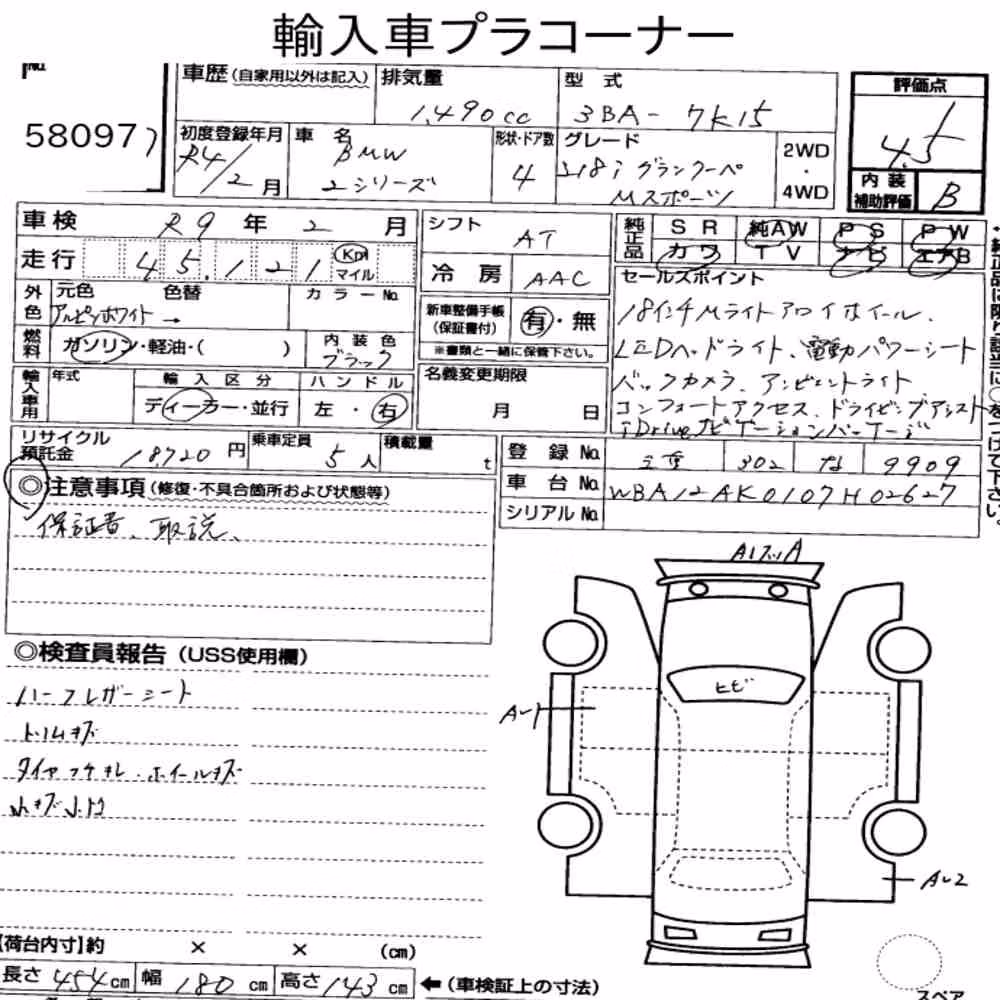 輸入車プラコーナー
No.
58097
車歴 (自家用以外は記入)
排気量
1,490cc
型式
3BA- 7K15
評価点
4.5
初度登録年月
R4/2月
車名
BMW
2シリーズ
形状・ドア数
4
グレード
218i グランクーペ
Mスポーツ
2WD
・
4WD
内装
補助評価
B
車検 R9年 2月
走行 45,121 Km
マイル
シフト AT
冷房 AAC
純正品
SR 純AW PS PW
カワ TV ナビ エアB
外色
元色 色替
アルピンホワイト →
カラーNo.
新車整備手帳
(保証書付)
有・無
※書類と一緒に保管下さい。
セールスポイント
18インチMライトアロイホイール、
LEDヘッドライト、電動パワーシート
バックカメラ、アンビエントライト
コンフォートアクセス、ドライビングアシスト
iDriveナビゲーションパッケージ
燃料
ガソリン・軽油・( )
内装色
ブラック
輸入車用
年式
輸入区分
ディーラー・並行
ハンドル
左・右
名義変更期限
月 日
リサイクル
預託金 18,720円
乗車定員 5人
積載量 t
登録No. 三重 302 な 9909
車台No. WBA12AK0107H02627
シリアルNo.
◎注意事項 (修復・不具合箇所および状態等)
保証書、取説、
◎検査員報告 (USS使用欄)
ハーフレザーシート
トリムキズ
タイヤつキレ・ホイールキズ
小キズ小凹
A1スリA
ヒビ
AU1
AU2
【荷台内寸】約 × × (cm)
長さ 454cm 幅 180cm 高さ 143cm ←(車検証上の寸法)
スペア